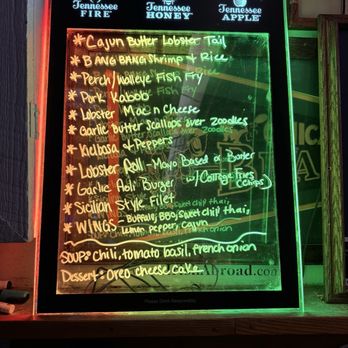 Tennessee Tennessee Tennessee
FIRE HONEY APPLE
* Cajun Butter Lobster Tail
* BANG BANG Shrimp & Rice
* Perch/Walleye Fish Fry
* Pork Kabob
* Lobster Mac n Cheese
* Garlic Butter Scallops over Zoodles
* Kielbasa & Peppers
* Lobster Roll - Mayo Based or Butter
* Garlic Aoli Burger w/ Cottage Fries (chips)
* Sicilian Style Filet
* WINGS - Buffalo, BBQ, Sweet chip thai,
lemon pepper, cajun
SOUPS: Chili, tomato basil, french onion
Dessert: Oreo cheese cake
road.com
Please Drink Responsibly.